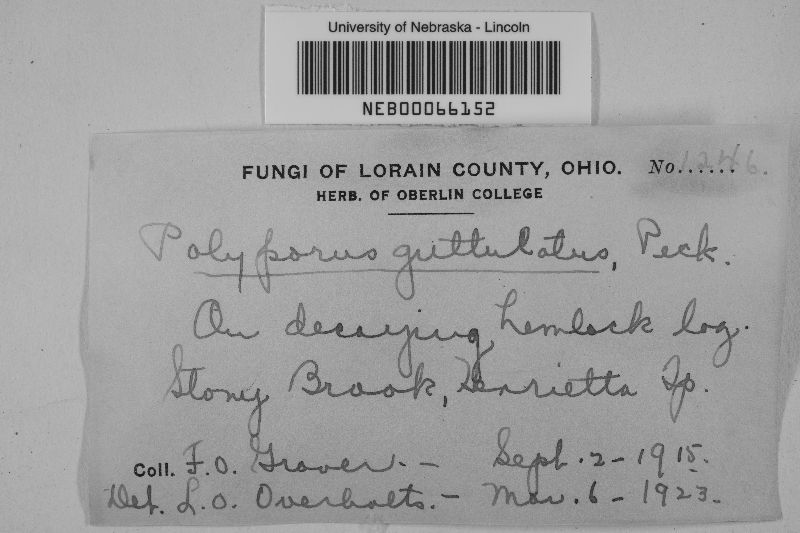 University of Nebraska - Lincoln
NEB00066152
FUNGI OF LORAIN COUNTY, OHIO. No...... 1246.
HERB. OF OBERLIN COLLEGE
Polyporus guttulatus, Peck.
On decaying hemlock log.
Stony Brook, Henrietta Tp.
Coll. F.O. Grover. - Sept. 2 - 1915.
Det. L.O. Overholts. - Mar. 6 - 1923.